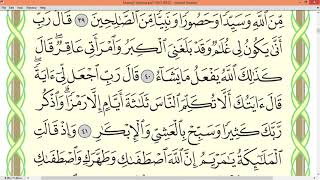 مِّنَ ٱللَّهِ وَسَيِّدًا وَحَصُورًا وَنَبِيًّا مِّنَ ٱلصَّٰلِحِينَ ٣٩ قَالَ رَبِّ
أَنَّىٰ يَكُونُ لِى غُلَٰمٌ وَقَدْ بَلَغَنِىَ ٱلْكِبَرُ وَٱمْرَأَتِى عَاقِرٌ قَالَ
كَذَٰلِكَ ٱللَّهُ يَفْعَلُ مَا يَشَآءُ ٤٠ قَالَ رَبِّ ٱجْعَل لِّىٓ ءَايَةً
قَالَ ءَايَتُكَ أَلَّا تُكَلِّمَ ٱلنَّاسَ ثَلَٰثَةَ أَيَّامٍ إِلَّا رَمْزًا وَٱذْكُر
رَّبَّكَ كَثِيرًا وَسَبِّحْ بِٱلْعَشِىِّ وَٱلْإِبْكَٰرِ ٤١ وَإِذْ قَالَتِ
ٱلْمَلَٰٓئِكَةُ يَٰمَرْيَمُ إِنَّ ٱللَّهَ ٱصْطَفَىٰكِ وَطَهَّرَكِ وَٱصْطَفَىٰكِ